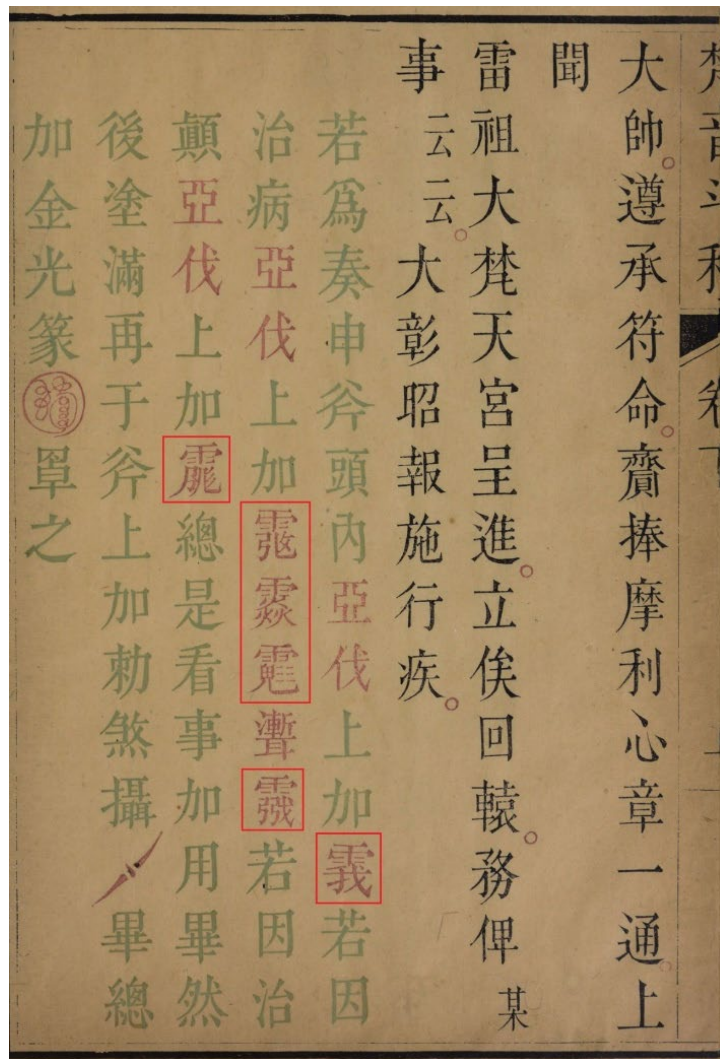 梵音斗科 卷下
大帥。遵承符命。齎捧摩利心章一通。上
聞
雷祖大梵天宮呈進。立俟回轅。務俾某
事云云。大彰昭報施行疾。
若爲奏申斧頭內亞伐上加若因
治病亞伐上加聻若因治
顛亞伐上加總是看事加用畢然
後塗滿再于斧上加勅煞攝畢總
加金光篆罩之